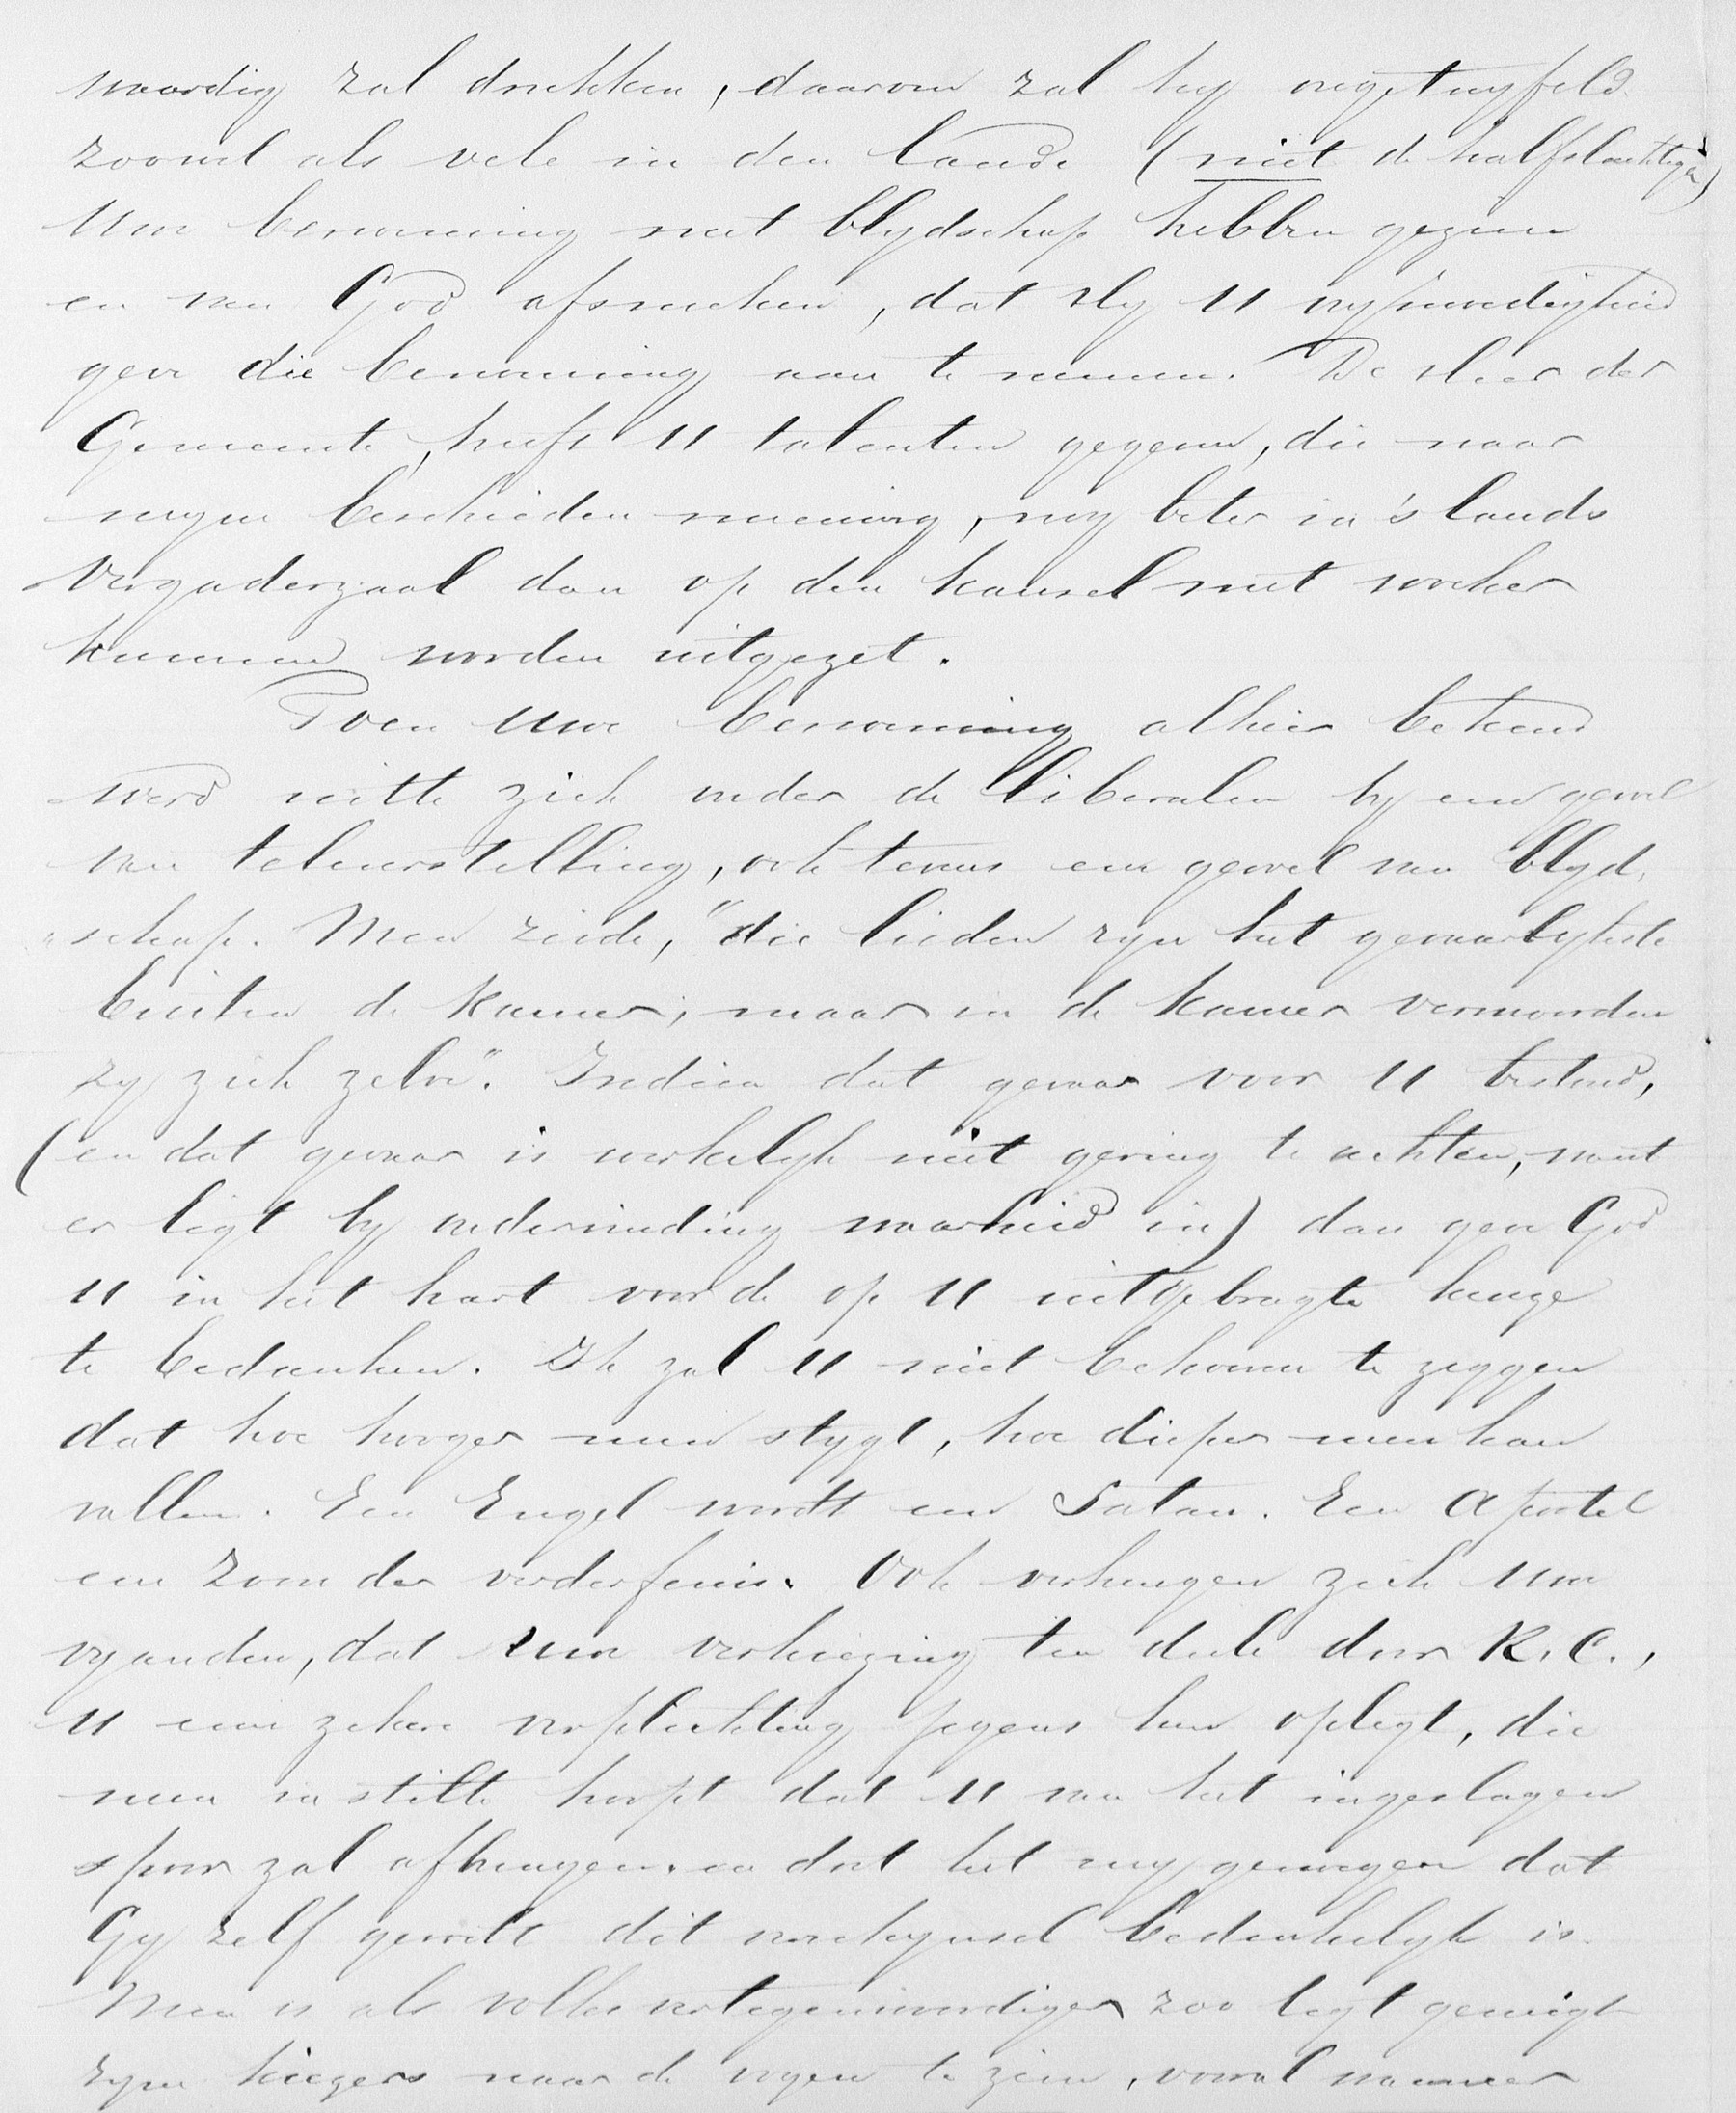 waardig zal drukken, daarom zal hy ongetwyfeld
zoowel als vele in den lande (niet de halfslachtigen)
Uwe benoeming met blydschap hebben gezien
en van God afsmeeken, dat Hy U vrymoedigheid
geve die benoeming aan te nemen. De Heer der
Gemeente, heeft U talenten gegeven, die naar
myne bescheiden meening, nog beter in 's lands
vergaderzaal dan op den kansel met woeker
kunnen worden uitgezet.
Toen Uwe benoeming alhier bekend
werd uitte zich onder de liberalen by een gevoel
van teleurstelling, ook tevens een gevoel van blyd-
schap. Men zeide, "die lieden zyn het gevaarlykste
buiten de Kamer, maar in de Kamer vermoorden
zy zich zelve". Indien dat gevaar voor U bestond,
(en dat gevaar is werkelyk niet gering te achten, want
er ligt by ondervinding waarheid in) dan geve God
U in het hart voor de op U uitgebragte keuze
te bedanken. Ik zal U niet behoeven te zeggen
dat hoe hooger men stygt, hoe dieper men kan
vallen. Een Engel wordt een Satan. Een Apostel
een zoon der verderfenis. Ook verheugen zich Uwe
vyanden, dat Uwe verkiezing ten deele door R. C.,
U eene zekere verplichting jegens hen oplegt, die
men in stilte hoopt dat U van het ingeslagen
spoor zal afbrengen. en dat het my genoegen dat
Gy zelf gevoelt dit verschynsel bedenkelyk is.
Men is als volksvertegenwoordiger zoo ligt geneigd
zyne kiezers naar de oogen te zien, vooral wanneer